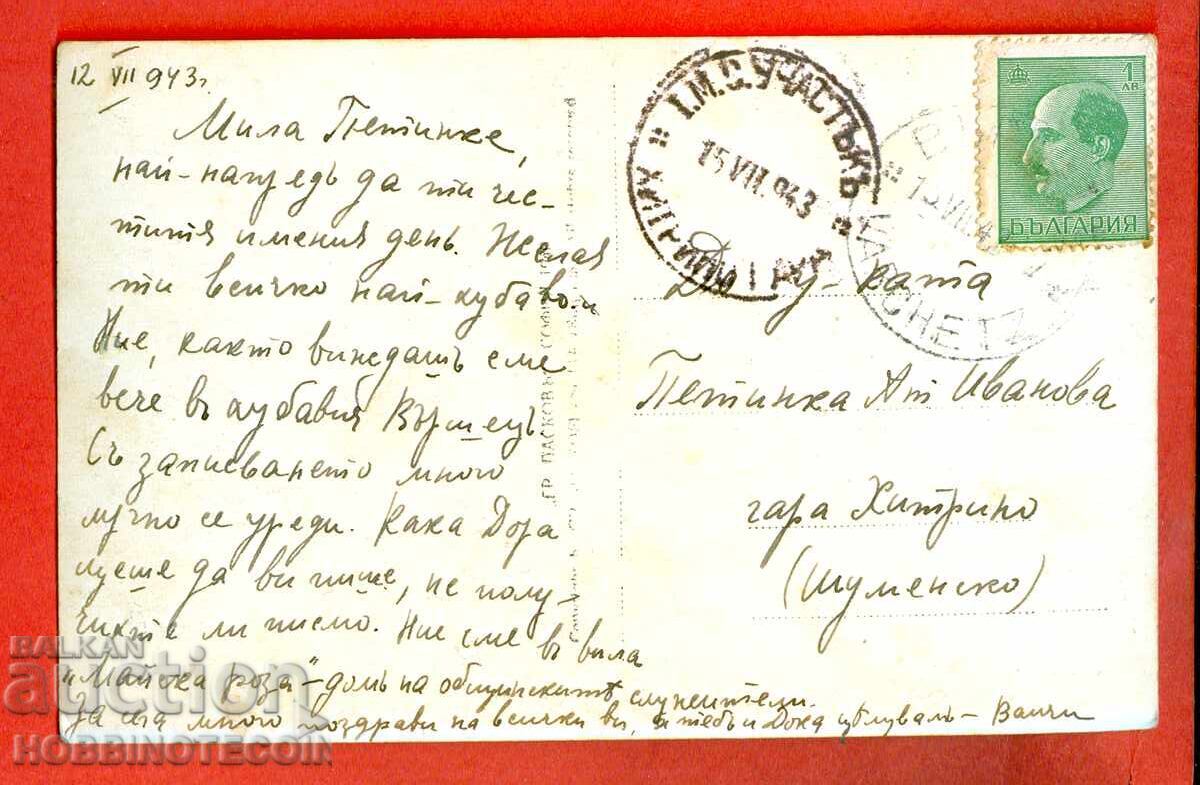 12 VII 943г.
Мила Петинке,
най-напредъ да ти чес-
титя именния день. Желая
ти всичко най-хубаво.
Ние, както виждашъ сме
вече въ хубавия Вършецъ.
Съ записването много
лучно се уреди. Кака Дора
щеше да ви пише, не полу-
чихте ли писмо. Ние сме въ вила
"Майска роза" - домъ на общинскитѣ служители.
За сега много поздрави на всички ви, а тебъ и Дока цѣлувамъ -
Д-ца
Петинка Ат Иванова
гара Хитрино
(Шуменско)
I.М.С.УЧАСТЪКЪ
15 VII. 943
VARCHETZ
1
ЛВ
БЪЛГАРИЯ
ГР. ПАСКОВЪ
BALKAN
auction
HOBBINOTECOIN